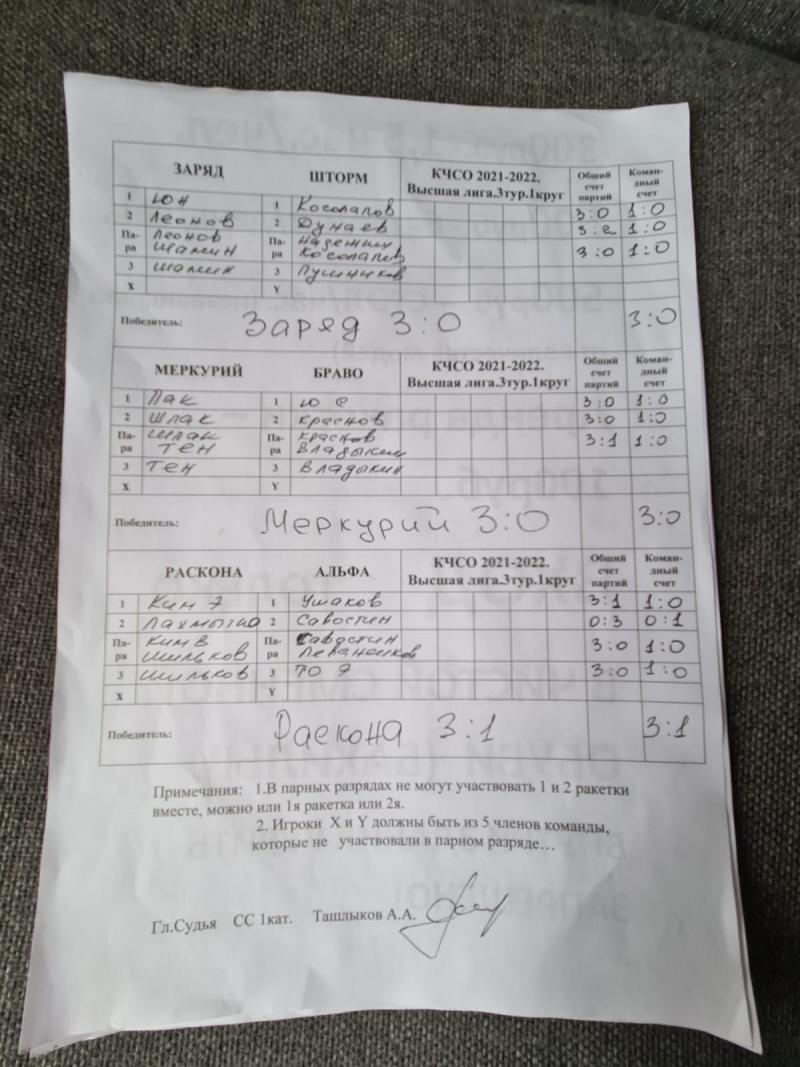 ЗАРЯД ШТОРМ КЧСО 2021-2022. Высшая лига.3тур.1круг Общий счет партий Коман-дный счет
1 Юн 1 Косолапов 3:0 1:0
2 Леонов 2 Дунаев 3:2 1:0
Па-ра Леонов Шамин Па-ра Надежкин Косолапов 3:0 1:0
3 Шамин 3 Пушников
X Y
Победитель: Заряд 3:0 3:0
МЕРКУРИЙ БРАВО КЧСО 2021-2022. Высшая лига.3тур.1круг Общий счет партий Коман-дный счет
1 Пак 1 Ю С 3:0 1:0
2 Шпак 2 Краснов 3:0 1:0
Па-ра Шпак Тен Па-ра Краснов Владыкин 3:1 1:0
3 Тен 3 Владыкин
X Y
Победитель: Меркурий 3:0 3:0
РАСКОНА АЛЬФА КЧСО 2021-2022. Высшая лига.3тур.1круг Общий счет партий Коман-дный счет
1 Ким 1 Ушаков 3:1 1:0
2 2 Савостин 0:3 0:1
Па-ра Ким В Шильков Па-ра Савостин 3:0 1:0
3 Шильков 3 ТО 3:0 1:0
X Y
Победитель: Раскона 3:1 3:1
Примечания: 1.В парных разрядах не могут участвовать 1 и 2 ракетки
вместе, можно или 1я ракетка или 2я.
2. Игроки X и Y должны быть из 5 членов команды,
которые не участвовали в парном разряде…
Гл.Судья СС 1кат. Ташлыков А.А.